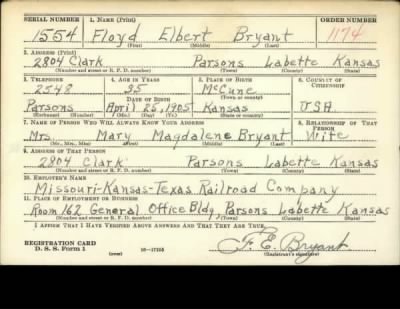 SERIAL NUMBER 1. NAME (Print) ORDER NUMBER
1554 Floyd Elbert Bryant 1174
(First) (Middle) (Last)
2. ADDRESS (Print)
2804 Clark Parsons Labette Kansas
(Number and street or R. F. D. number) (Town) (County) (State)
3. TELEPHONE 4. AGE IN YEARS 5. PLACE OF BIRTH 6. COUNTRY OF CITIZENSHIP
2548 35 McCune
DATE OF BIRTH (Town or county)
Parsons April 25, 1905 Kansas USA
(Exchange) (Number) (Mo.) (Day) (Yr.) (State or country)
7. NAME OF PERSON WHO WILL ALWAYS KNOW YOUR ADDRESS 8. RELATIONSHIP OF THAT PERSON
Mrs. Mary Magdalene Bryant Wife
(Mr., Mrs., Miss) (First) (Middle) (Last)
9. ADDRESS OF THAT PERSON
2804 Clark Parsons Labette Kansas
(Number and street or R. F. D. number) (Town) (County) (State)
10. EMPLOYER'S NAME
Missouri-Kansas-Texas Railroad Company
11. PLACE OF EMPLOYMENT OR BUSINESS
Room 162 General Office Bldg Parsons Labette Kansas
(Number and street or R. F. D. number) (Town) (County) (State)
I AFFIRM THAT I HAVE VERIFIED ABOVE ANSWERS AND THAT THEY ARE TRUE.
REGISTRATION CARD F. E. Bryant
D. S. S. Form 1 (over) (Registrant's signature)